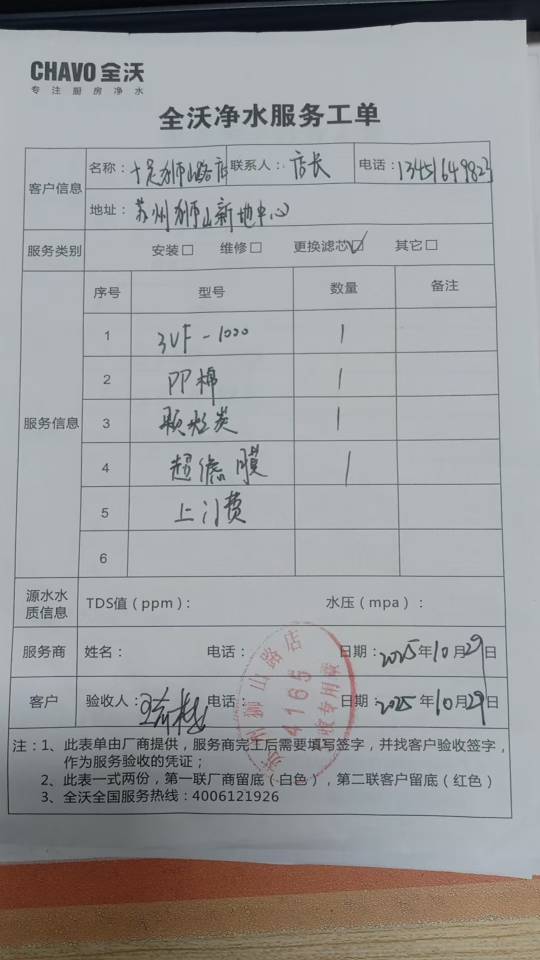 CHAVO 全沃
专注厨房净水
全沃净水服务工单
客户信息
名称：十足狮山路店 联系人：店长 电话：13451649823
地址：苏州狮山新地中心
服务类别 安装□ 维修□ 更换滤芯☑ 其它□
服务信息
序号 型号 数量 备注
1 3UF-1000 1
2 PP棉 1
3 颗粒炭 1
4 超滤膜 1
5 上门费
6
源水水质信息 TDS值（ppm）： 水压（mpa）：
服务商 姓名： 电话： 日期：2025年10月29日
客户 验收人： 电话： 日期：2025年10月29日
苏州狮山路店
4165
收专用章
注：1、此表单由厂商提供，服务商完工后需要填写签字，并找客户验收签字，
作为服务验收的凭证；
2、此表一式两份，第一联厂商留底（白色），第二联客户留底（红色）
3、全沃全国服务热线：4006121926